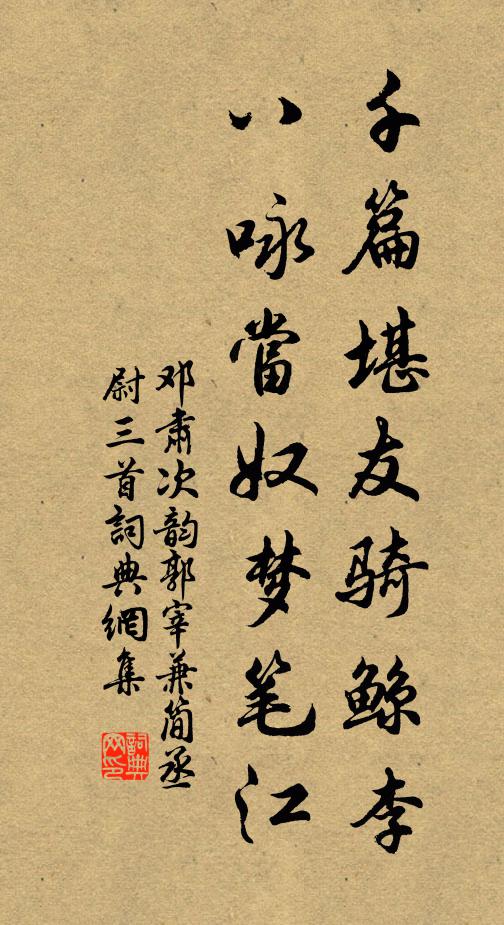 千篇堪友骑鲸李
八咏當奴梦笔江
邓肃次韵郭宰兼简丞
尉三首詞典網集
詞典
网印